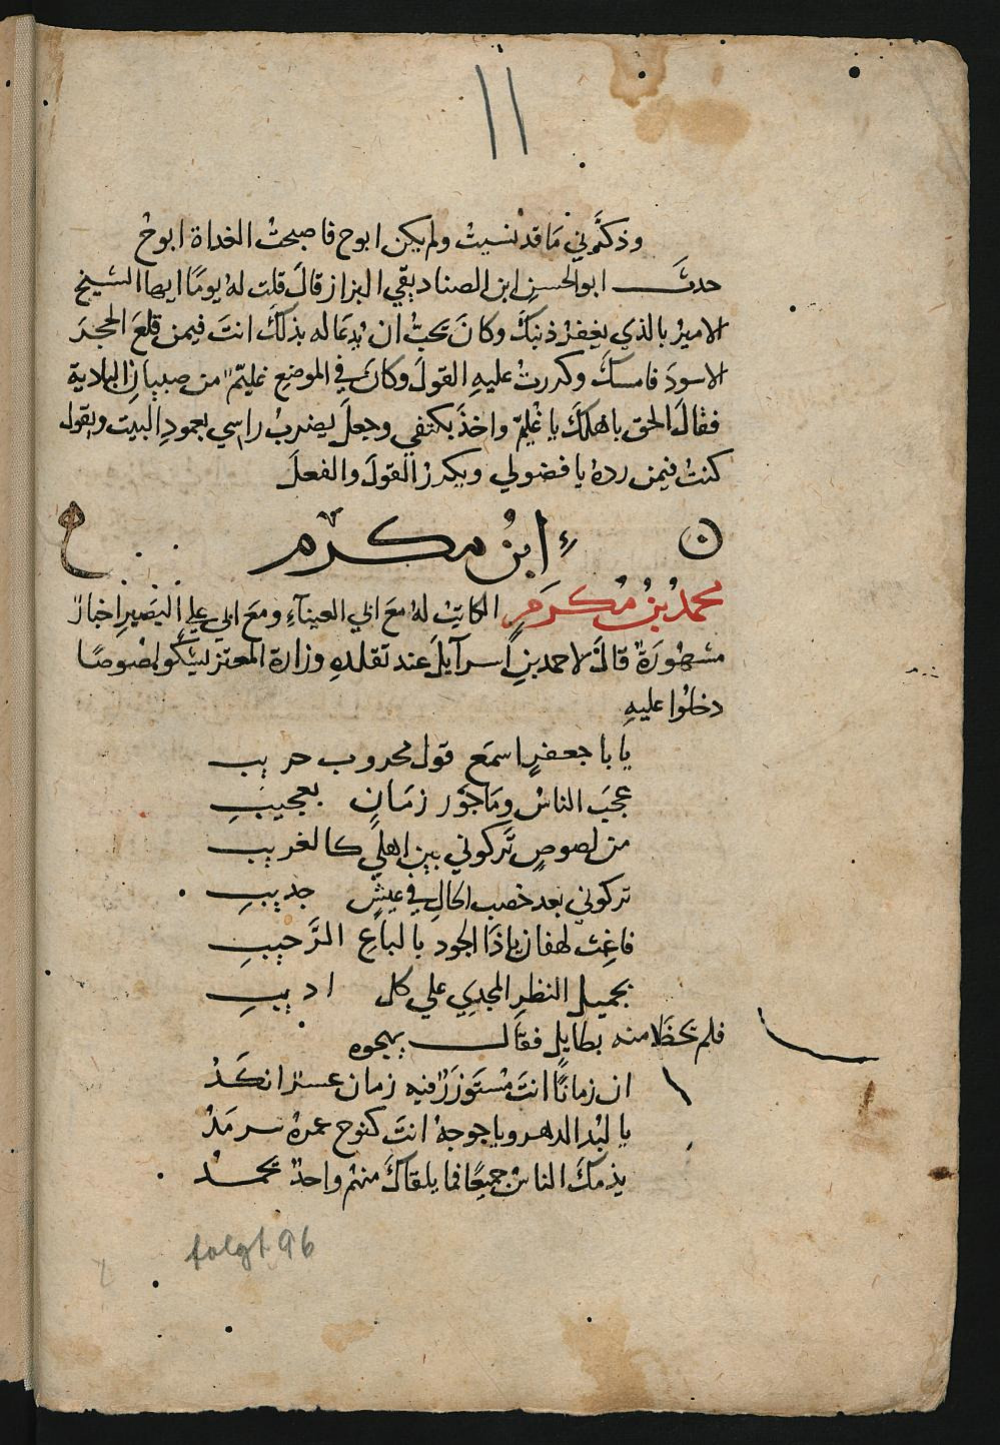 ١١
وذكَّرني مَا قد نسيتُ ولم يكن ابوح فاصبحتُ الغداة ابوحُ
حدثَ ابو الحسنِ ابن الصناديقي البزاز قالَ قلت له يومًا ايها الشيخ
الاميرُ بالذي يغفرُ ذنبكَ وكانَ يحبُّ ان يُدعَا له بذلكَ انتَ فيمن قلعَ الحجرَ
الاسودَ فامسكَ وكررتُ عليهِ القولَ وكانَ في الموضعِ غليّمٌ من صبيانِ البادية
فقالَ الحق باهلكَ يا غُليّم واخذَ بكتفي وجعلَ يضربُ راسي بعمودِ البيت ويقول
كنتُ فيمن ردهُ يا فضولي ويكررُ القولَ والفعلَ
ابنُ مكرم
محمدُ بنُ مُكرَمٍ الكاتبُ لهُ معَ ابي العيناءِ ومعَ ابي علي البَصِيرِ اخبارٌ
مشهُورَةٌ قالَ لاحمد بنِ اسرآيلَ عند تقلدهِ وزارة المعتز يشكو لصُوصًا
دخلُوا عليهِ
يا با جعفرٍ اسمَع قول محروب حريب
عجبَ الناسُ ومَا جَوْر زمَانٍ بعجيبِ
من لصوصٍ تَركوني بين اهلي كالغريب
تركوني بعد خصب الحالِ في عيشٍ جديبِ
فاغِث لهفان ياذَا الجود بالباعِ الرَّحيبِ
بجميلِ النظرِ المجدِي علي كل اديبِ
فلم يحظَ منه بطايلٍ فقالَ يهجوه
ان زمانًا انتَ مُستَوزَرٌ فيهِ زمان عسرٌ انكَدُ
يا لبُد الدهر وياجوجهُ انتَ كنوح عمرهُ سرمَدُ
يذمكَ الناسُ جميعًا فما يلقاكَ منهُم واحدٌ يحمدُ
folgt 96